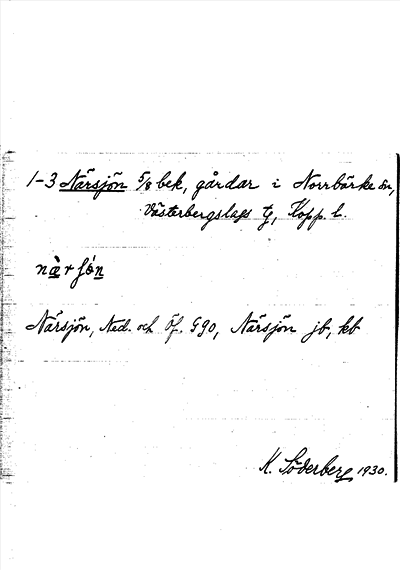 1-3 Närsjön 5/8 bek, gårdar i Norrbärke sn,
Västerbergslags tg, Kopp. l.
Närsjön, Ned. och Öf. G90, Närsjön jb, kb
K. Söderberg 1930.